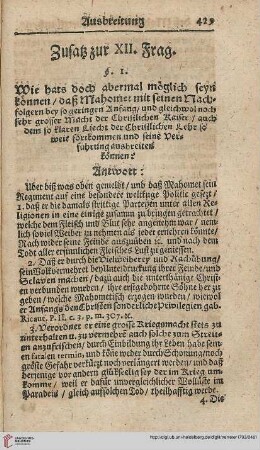 Ausbreitung 429
Zusatz zur XII. Frag.
§. 1.
Wie hats doch abermal möglich seyn
können / daß Mahomet mit seinen Nach-
folgern bey so geringem Anfang / und gleichwol noch
sehr grosser Macht der Christlichen Kaiser / auch
dem so klaren Liecht der Christlichen Lehr so
weit fortkommen und seine Ver-
führung ausbreiten
können?
Antwort:
Uber diß was oben gemeldt / und daß Mahomet sein
Regiment auf eine besondere weltkluge Politic gesetzt /
1. daß er die damals strittige Partheyen unter allen Re-
ligionen in eine einige zusamm zu bringen getrachtet /
welche dem Fleisch und Blut sehr angenehm war / nem-
lich soviel Weiber zu nehmen als jeder ernehren könnte /
Nach wider seine Feinde auszuüben ꝛc. und nach dem
Todt aller ersinnlichen Fleisches Lust zu geniessen.
2. Daß er durch die Vielweiberey und Nachübung /
sein Volk vermehret
Sclaven machen / dazu auch die unterthänige Christ-
en verbunden wurden / ihre erstgebohrne Söhne her zu
geben / welche Mahometisch erzogen wurden / wiewol
er Anfangs den Christen sonderliche Privilegien gab.
Ricaut. P. II. c. 3. p. m. 307. &c.
3. Verordnet er eine grosse Kriegsmacht stets zu
unterhalten u. zu vermehren auch solche zum Streiten
anzufrischen / durch Einbildung ihr Leben habe sein-
en fatalen termin, und könne weder durch Schonung
noch Gefahr verkürzt noch verlängert werden / und daß
derjenige vor andern glückselig sey der im Krieg um-
komme / weil er dafür unvergleichlicher Wollüste im
Paradeis / gleich auf solchen Tod / theilhafftig werde.
4. Dis